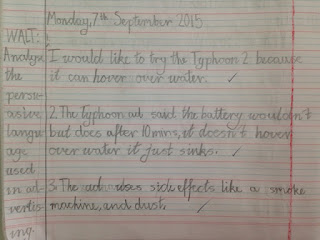 Monday, 7th September 2015
WALT:
Analyse
the
persu-
asive
langu
age
used
in ad-
vertis-
ing.
I would like to try the Typhoon 2 because
it can hover over water. ✓
2. The typhoon ad said the battery wouldn't
but does after 10mins, it doesn't hover
over water it just sinks. ✓
3. The ad uses side effects like a smoke
machine, and dust. ✓